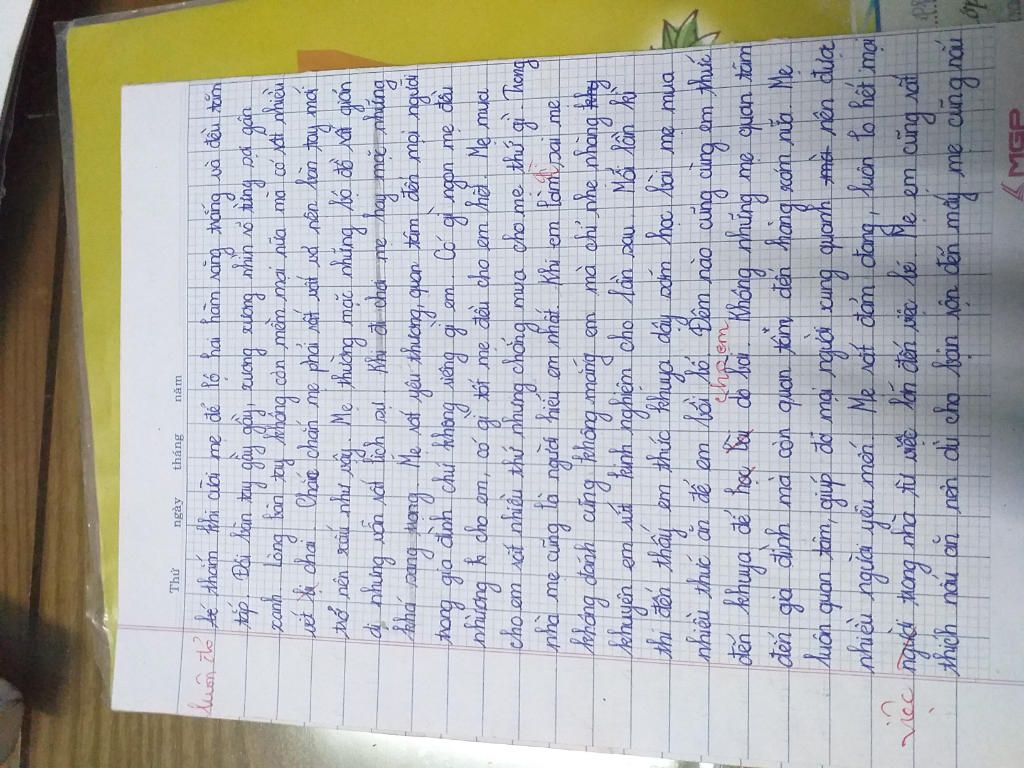 Thứ ngày tháng năm
luôn đỏ
bé thắm thi cười mẹ để lộ hai hàm răng trắng và đều tăn
tắp. Đôi bàn tay gầy gầy, xương xương nhìn rõ từng sợi gân
xanh. Lòng bàn tay không còn mềm mại nữa mà có rất nhiều
vết bị chai. Chắc chắn mẹ phải rất vất vả nên bàn tay mới
trở nên xấu như vậy. Mẹ thường mặc những bộ đồ rất giản
dị nhưng vẫn rất lịch sự. Khi đi chơi mẹ hay mặc những
khá sang trọng. Mẹ rất yêu thương, quan tâm đến mọi người
trong gia đình chứ không riêng gì em. Có gì ngon mẹ đều
nhường h cho em, có gì tốt mẹ đều cho em hết. Mẹ mua
cho em rất nhiều thứ nhưng chẳng mua cho mẹ thứ gì. Trong
nhà mẹ cũng là người hiểu em nhất. Khi em làm gì sai mẹ
không đánh cũng không mắng em mà chỉ nhẹ nhàng
khuyên em rút kinh nghiệm cho lần sau. Mỗi lần kì
thi đến thấy em thức khuya dậy sớm học bài mẹ mua
nhiều thức ăn để em bồi bổ. Đêm nào cũng cùng em thức
đến khuya để học bài dò bài cho em. Không những mẹ quan tâm
đến gia đình mà còn quan tâm đến hàng xóm nữa. Mẹ
luôn quan tâm, giúp đỡ mọi người xung quanh mà nên được
nhiều người yêu mến. Mẹ rất đảm đang, luôn lo hết mọi
việc người trong nhà từ việc lớn đến việc bé. Mẹ em cũng rất
thích nấu ăn nên dù cho bận rộn đến mấy mẹ cũng nấu
MGP